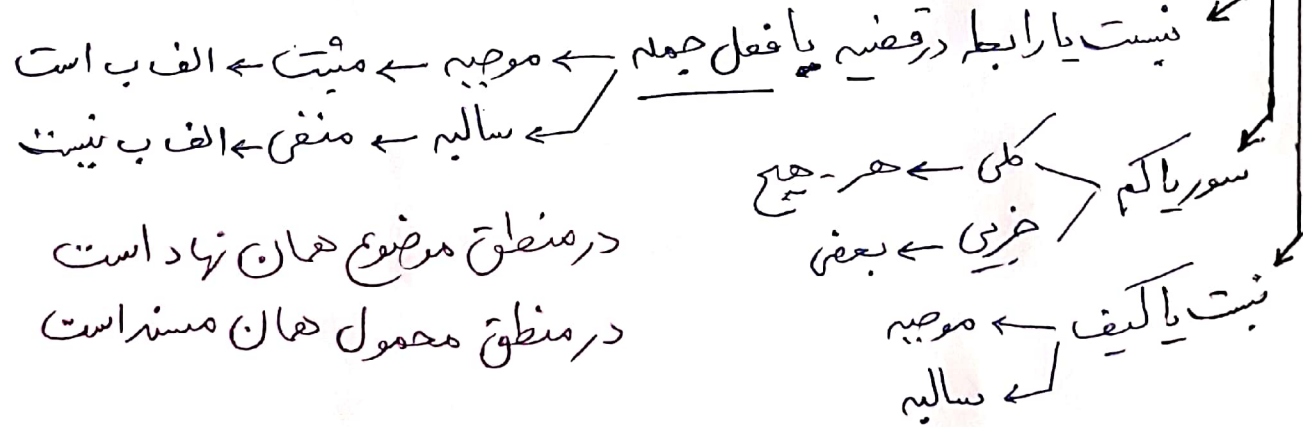 نسبت یا رابطه در قضیه یا فعل جمله ← موجبه ← مثبت ← الف ب است
← سالبه ← منفی ← الف ب نیست
سور یا کم
کلی ← هر - هیچ
جزیی ← بعضی
نسبت یا کیف ← موجبه
← سالبه
در منطق موضوع همان نهاد است
در منطق محمول همان مسند است